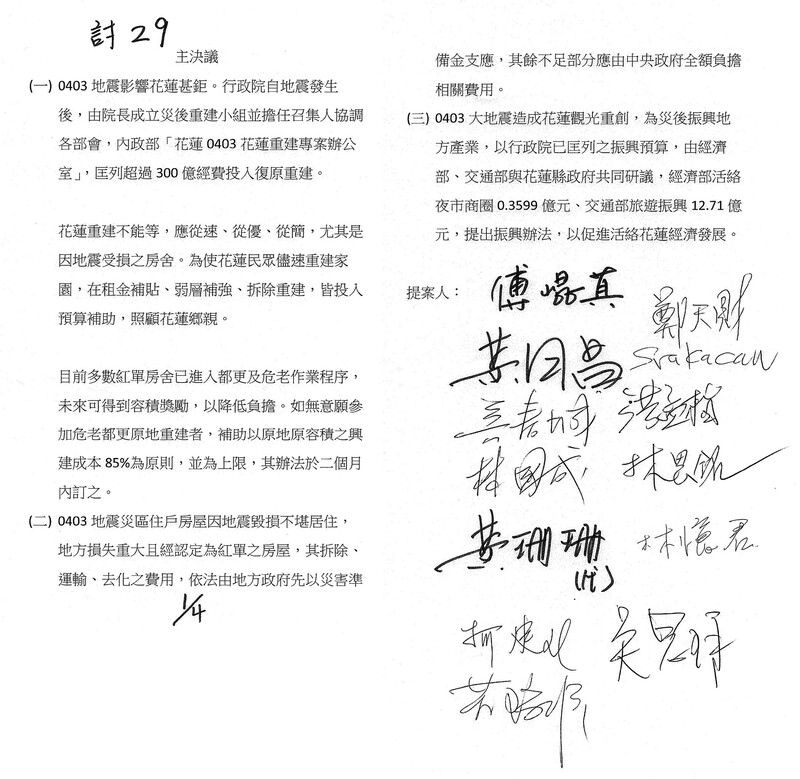 討29
主決議
(一) 0403 地震影響花蓮甚鉅。行政院自地震發生
後，由院長成立災後重建小組並擔任召集人協調
各部會，內政部「花蓮 0403 花蓮重建專案辦公
室」，匡列超過 300 億經費投入復原重建。
花蓮重建不能等，應從速、從優、從簡，尤其是
因地震受損之房舍。為使花蓮民眾儘速重建家
園，在租金補貼、弱層補強、拆除重建，皆投入
預算補助，照顧花蓮鄉親。
目前多數紅單房舍已進入都更及危老作業程序，
未來可得到容積獎勵，以降低負擔。如無意願參
加危老都更原地重建者，補助以原地原容積之興
建成本 85%為原則，並為上限，其辦法於二個月
內訂之。
(二) 0403 地震災區住戶房屋因地震毀損不堪居住，
地方損失重大且經認定為紅單之房屋，其拆除、
運輸、去化之費用，依法由地方政府先以災害準
1/4
備金支應，其餘不足部分應由中央政府全額負擔
相關費用。
(三) 0403 大地震造成花蓮觀光重創，為災後振興地
方產業，以行政院已匡列之振興預算，由經濟
部、交通部與花蓮縣政府共同研議，經濟部活絡
夜市商圈 0.3599 億元、交通部旅遊振興 12.71 億
元，提出振興辦法，以促進活絡花蓮經濟發展。
提案人：
傅崐萁
鄭天財
Sra Kacaw
黃國昌
洪孟楷
林國成
林思銘
黃珊珊
(代)
林憶君
吳思瑤